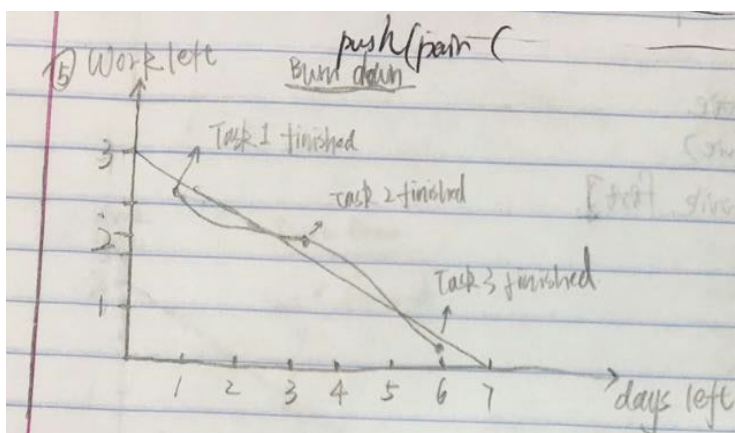 push(pair (
⑤ Work left
Burn down
3
Task 1 finished
Task 2 finished
2
Task 3 finished
1
1 2 3 4 5 6 7
days left